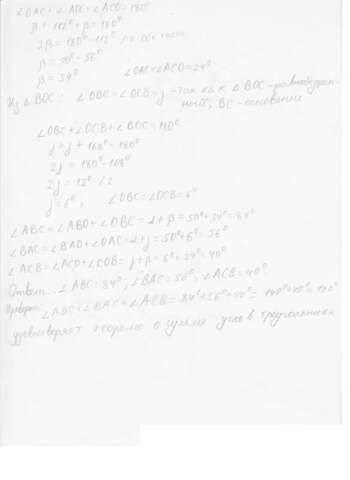 ∠OAC + ∠AOC + ∠ACO = 180°
β + 112° + β = 180°
2β = 180° - 112° / : 2
β = 90° - 56°
β = 34°
∠OAC = ∠ACO = 24°
Из ∆ BOC : ∠OBC = ∠OCB = j - так как ∆ BOC - равнобедрен-
ный, BC - основание
∠OBC + ∠OCB + ∠BOC = 180°
j + j + 168° = 180°
2j = 180° - 168°
2j = 12° / : 2
j = 6° ; ∠OBC = ∠OCB = 6°
∠ABC = ∠ABO + ∠OBC = 2 + β = 50° + 34° = 84°
∠BAC = ∠BAO + ∠OAC = 2 + j = 50° + 6° = 56°
∠ACB = ∠ACO + ∠COB = j + β = 6° + 34° = 40°
Ответ: ∠ABC = 84°, ∠BAC = 56°, ∠ACB = 40°.
Проверка: ∠ABC + ∠BAC + ∠ACB = 84° + 56° + 40° = 140° + 40° = 180°
удовлетворяет теореме о сумме углов треугольника